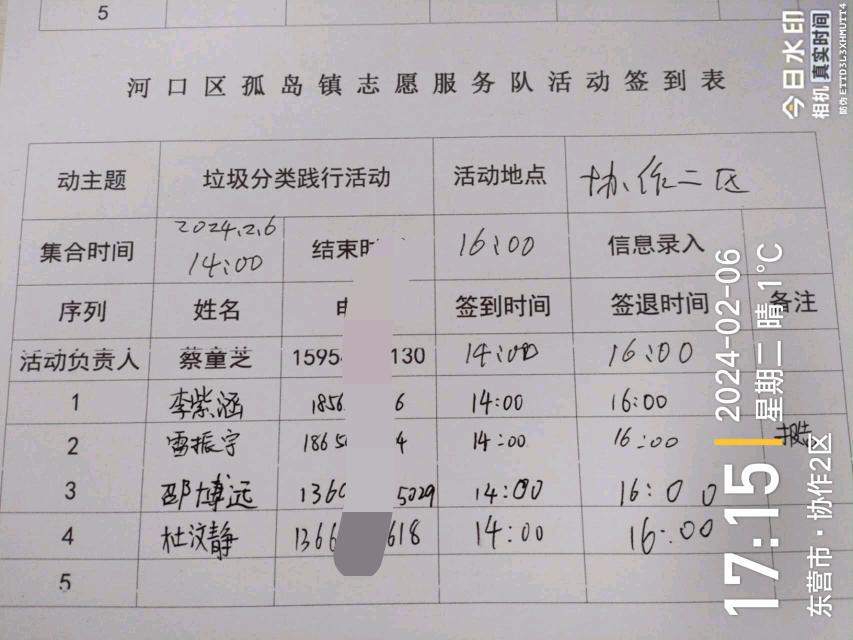 5
河口区孤岛镇志愿服务队活动签到表
动主题 垃圾分类践行活动 活动地点 协作二区
集合时间 2024.2.6 14:00 结束时 16:00 信息录入
序列 姓名 电 签到时间 签退时间 备注
活动负责人 蔡童芝 1595 130 14:00 16:00
1 李紫涵 1856 6 14:00 16:00
2 雷振宇 1865 4 14:00 16:00
3 邵博远 1360 5029 14:00 16:00
4 杜汶静 1366 618 14:00 16:00
5
今日水印
相机 真实时间
防伪 ETTD3L3XHMUTT4
17:15 2024-02-06
星期二 晴 1°C
东营市·协作2区